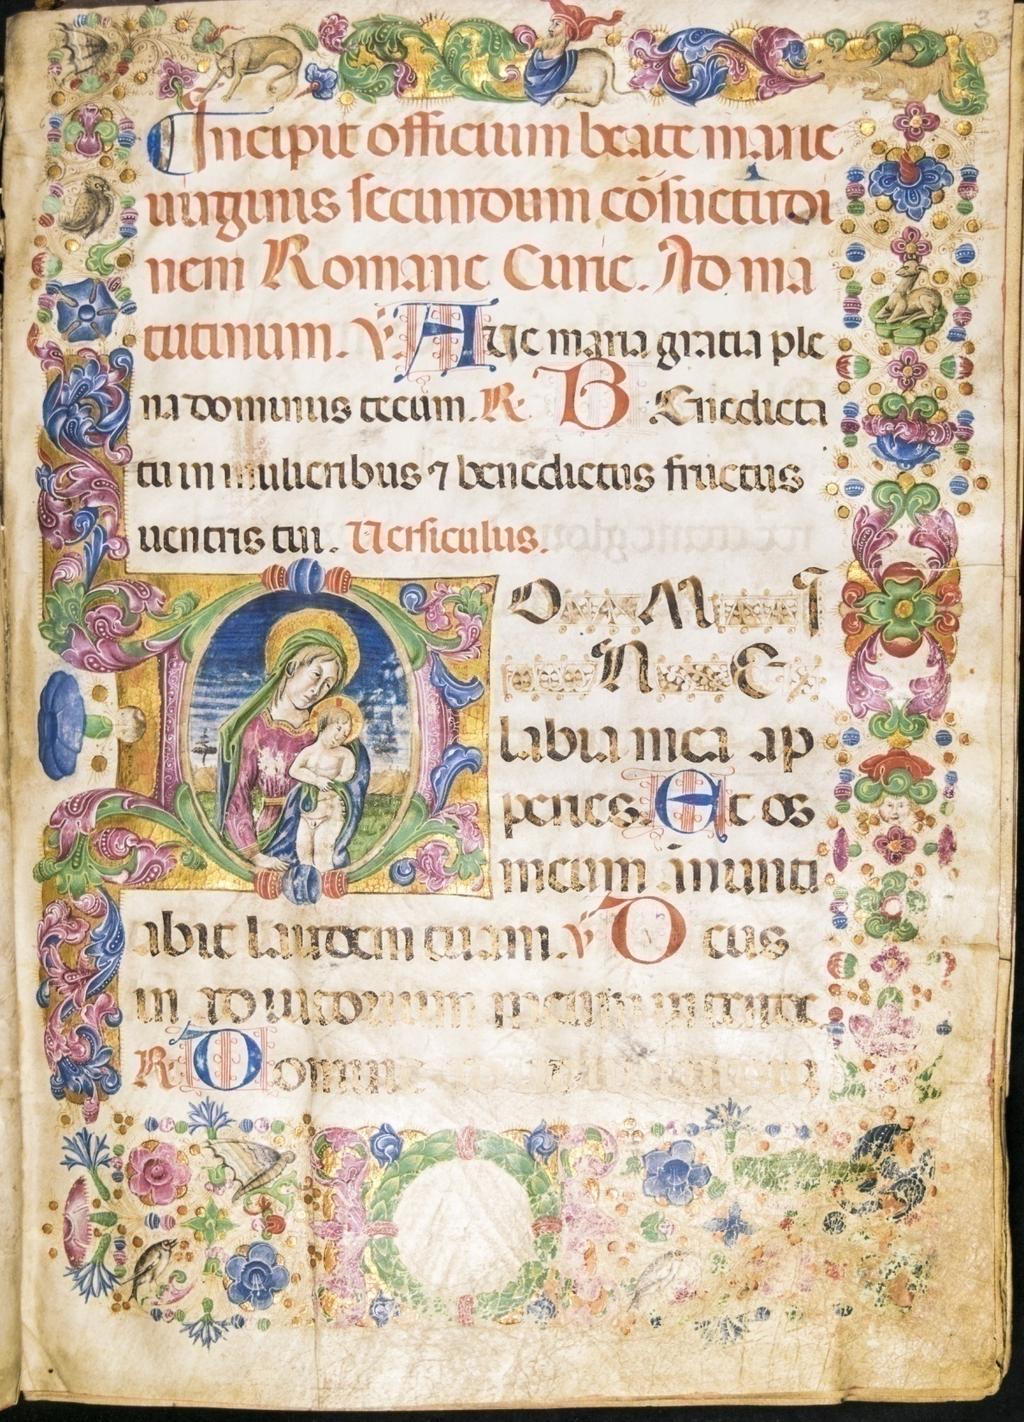 3
Incipit officium beate marie
uirginis secundum cōsuetudi
nem Romane Curie. Ad ma
tutinum. V. Aue maria gratia ple
na dominus tecum. R. Benedicta
tu in mulieribus ⁊ benedictus fructus
uentris tui. Versiculus.
DOMI
NE
labia mea ap
peries. Et os
meum anunti
abit laudem tuam. V Deus
in adiutorium meum intende
R. Domine